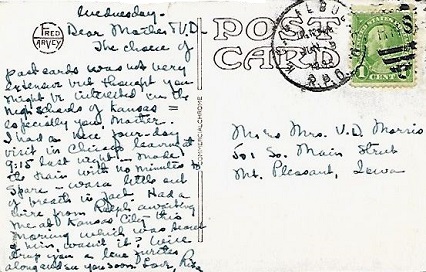 Wednesday.
Dear Mother & V.D.
The choice of
postcards was not very
extensive but thought you
might be interested in the
high schools of Kansas =
especially you Mother.
I had a nice four-day
visit in Chicago leaving at
9:15 last night - made
the train with no minutes to
spare - was a little out
of breath in fact. Had a
wire from Ralph awaiting
me at Kansas City this
morning which was decent
of him wasn't it? We'll
drop you a few lines
along and see you soon. Love,
FRED
HARVEY
POST
CARD
COMMERCIALCHROME
R.P.O.
1 CENT 1
Mr & Mrs. V. D. Morris
501 So. Main Street
Mt. Pleasant, Iowa